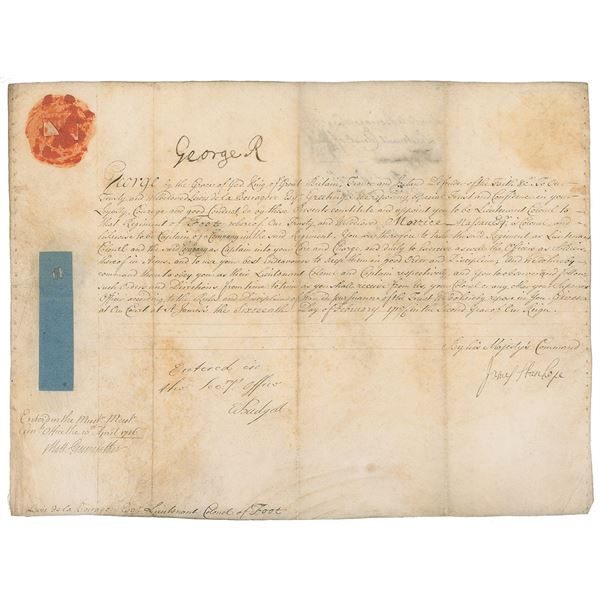 George R
George by the Grace of God King of Great Britain, France and Ireland Defender of the Faith &c To Our
Trusty and Welbeloved Lewis de la Bouragon Esqr Greeting We reposing especial Trust and Confidence in your
Loyalty, Courage and good Conduct do by these Presents constitute and appoint you to be Lieutenant Colonel to
that Regiment of Foot whereof Our Trusty and Welbeloved Morrice Esqr is Colonel, and
likewise to be Captain of a Company in the said Regiment. You are therefore to take the said Regiment as Lieutenant
Colonel and the said Company as Captain into your Care and Charge, and duly to Exercise as well the Officers as Soldiers
thereof in Arms, and to use your best Endeavours to keep them in good Order and Discipline; And We hereby
command them to obey you as their Lieutenant Colonel and Captain respectively, and you to observe and follow
such Orders and Directions from time to time as you shall receive from Us, your Colonel or any other your Superior
Officer according to the Rules and Discipline of War in pursuance of the Trust We hereby repose in you. Given
at Our Court at St James's the Sixteenth Day of February in the Second Year of Our Reign.
By his Majesty's Command
James Stanhope
Entered in
the Secry Office
Entred in the Mustr Mastr
Office the April 1716
Matt
Lewis de la Bouragon Esqr Lieutenant Colonel of Foot